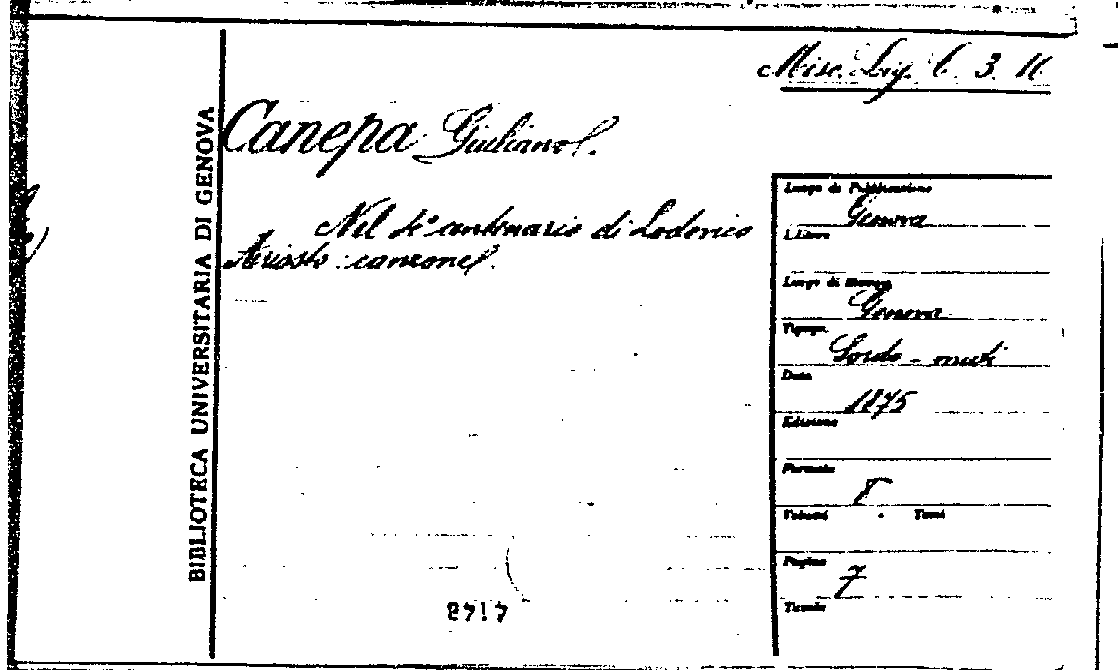 Misc. Lig. C. 3. 11
BIBLIOTECA UNIVERSITARIA DI GENOVA
Canepa Giuliano.
Nel 4° centenario di Lodovico
Ariosto: canzone.
Luogo di Pubblicazione
Genova
Luogo di Stampa
Genova
Tipogr.
Sordo-muti
Data
1875
Edizione
Formato
8
Volumi Tomi
Pagine
7
Tavole
8717